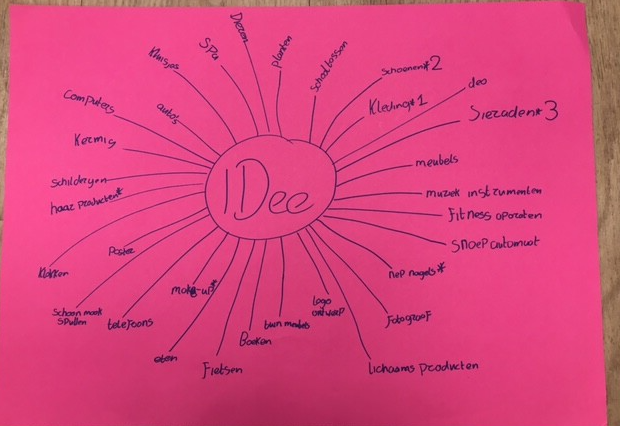 IDee
Dieren
planten
schooltassen
Schoenen* 2
Kleding* 1
deo
Sieraden* 3
meubels
muziek instrumenten
Fitness aporaten
snoep automaat
nep nagels*
Fotograaf
lichaams producten
logo
ontwerp
tuin meubels
Boeken
Fietsen
eten
make-up*
telefoons
Schoon maak
spullen
Poster
klokken
haar producten*
Schilderijen
Kermis
computers
auto's
Huisjes
SPa